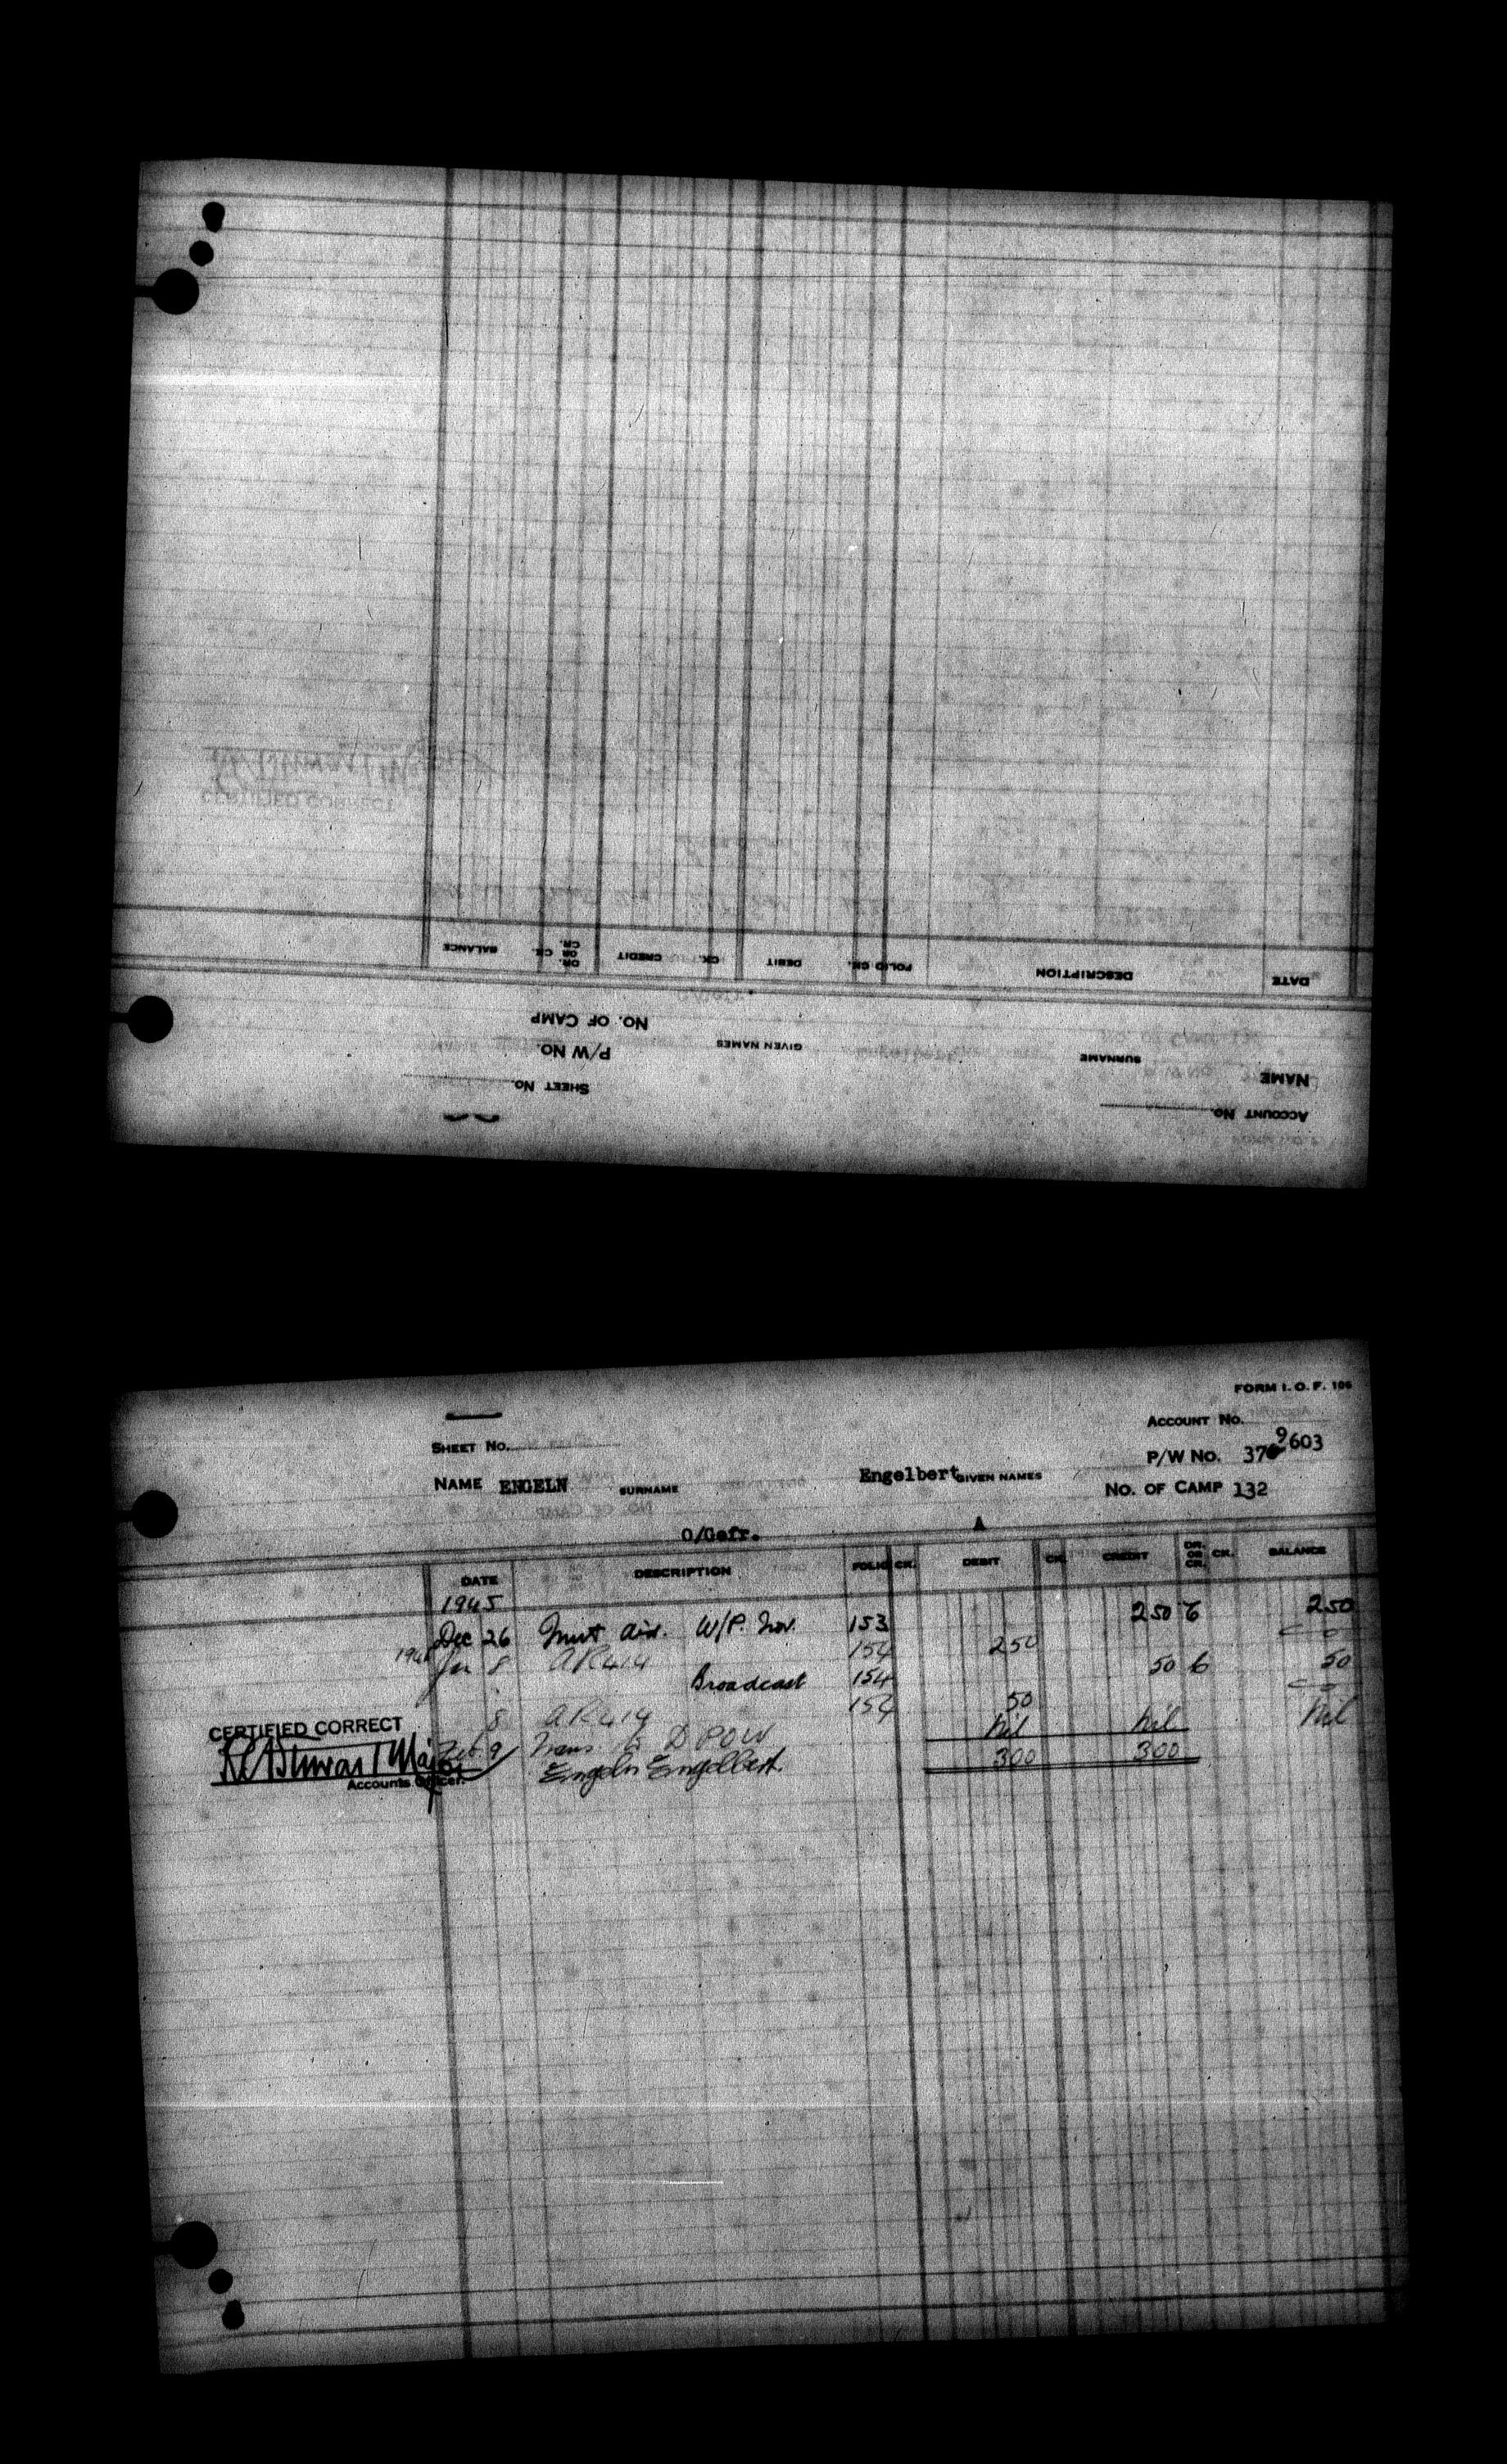 DATE
DESCRIPTION
FOLIO
CK.
DEBIT
CK.
CREDIT
DR. OR CR.
CK.
BALANCE
NO. OF CAMP
GIVEN NAMES
P/W NO.
SURNAME
NAME
SHEET NO.
ACCOUNT NO.
FORM I. O. F. 106
ACCOUNT NO.
SHEET NO.
P/W NO. 379603
NAME ENGELN SURNAME Engelbert GIVEN NAMES
NO. OF CAMP 132
O/Gefr. A
DATE DESCRIPTION FOLIO CK. DEBIT CK. CREDIT DR. OR CR. CK. BALANCE
1945
Dec 26 W/P. Nov. 153 250 250
Jan 8 AR414 154 250
Broadcast 154 50 50
8 AR414 154 50
Feb 9 Trans. to DPOW Nil Nil Nil
Engeln Engelbert. 300 300
CERTIFIED CORRECT
Major
Accounts Officer.